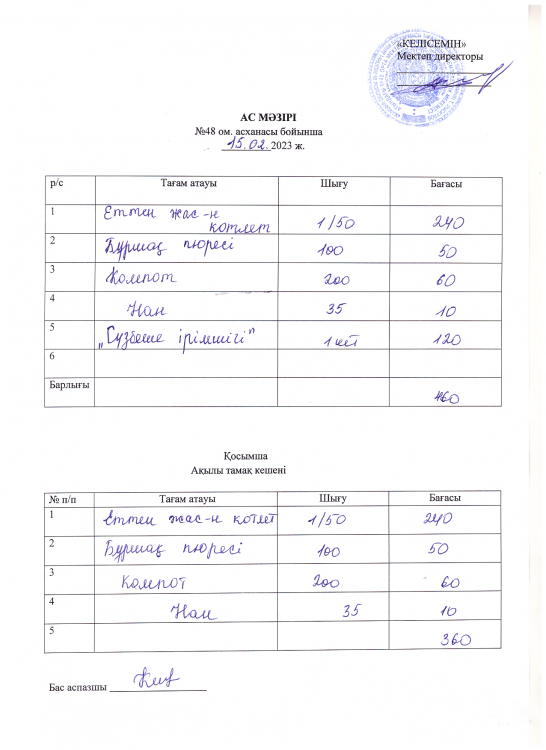 «КЕЛІСЕМІН»
Мектеп директоры
АС МӘЗІРІ
№48 ом. асханасы бойынша
15.02.2023 ж.
р/с Тағам атауы Шығу Бағасы
1 Еттен жас-н котлет 1/50 240
2 Бұршақ пюресі 100 50
3 Компот 200 60
4 Нан 35 10
5 „Сүзбеше ірімшігі" 1 120
6
Барлығы 460
Қосымша
Ақылы тамақ кешені
№ п/п Тағам атауы Шығу Бағасы
1 Еттен жас-н котлет 1/50 240
2 Бұршақ пюресі 100 50
3 Компот 200 60
4 Нан 35 10
5 360
Бас аспазшы